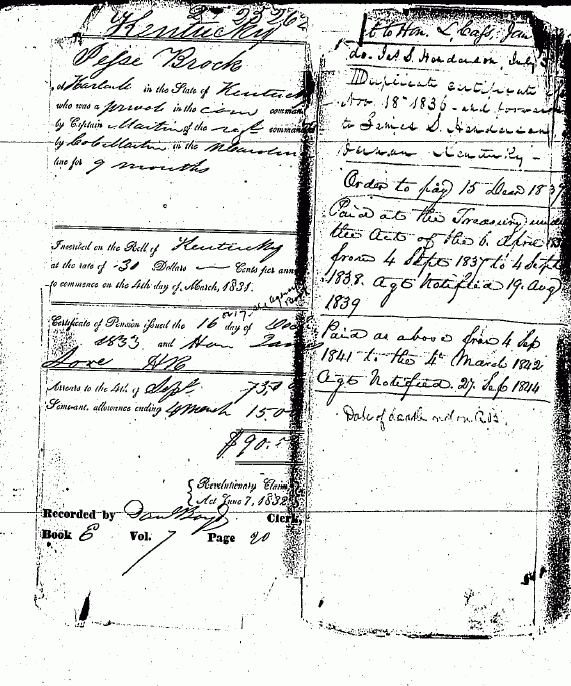 Kentucky
Jesse Brock
of Harlan in the State of Kentucky
who was a private in the command
by Captain Martin of the regt commanded
by Col Martin in the
line for 9 months
Inscribed on the Roll of Kentucky
at the rate of 30 Dollars — Cents per ann
to commence on the 4th day of March, 1831.
Certificate of Pension issued the 16 day of
1833 and Hon
Love HR
Arrears to the 4th of Sept. 75.00
Semi-ant. allowance ending 4 March 15.00
$90.
Revolutionary Claim,
Act June 7, 1832
Recorded by Clerk,
Book E Vol. 7 Page 20
to Hon. L. Cass, Jan
do. Jas S. Henderson, July
Duplicate certificate
Nov. 18th 1836 and forwar
to James S. Henderson
Kentucky —
Order to pay 15 1839
Paid at the Treasury under
the Act of the 6. April 183
from 4 Sept 1837 to 4 Sept
1838. Agt Notified 19. Aug
1839
Paid as above from 4 Sep
1841 to the 4th March 1842
Agt Notified. 27 Sep 1844
Date of death not on